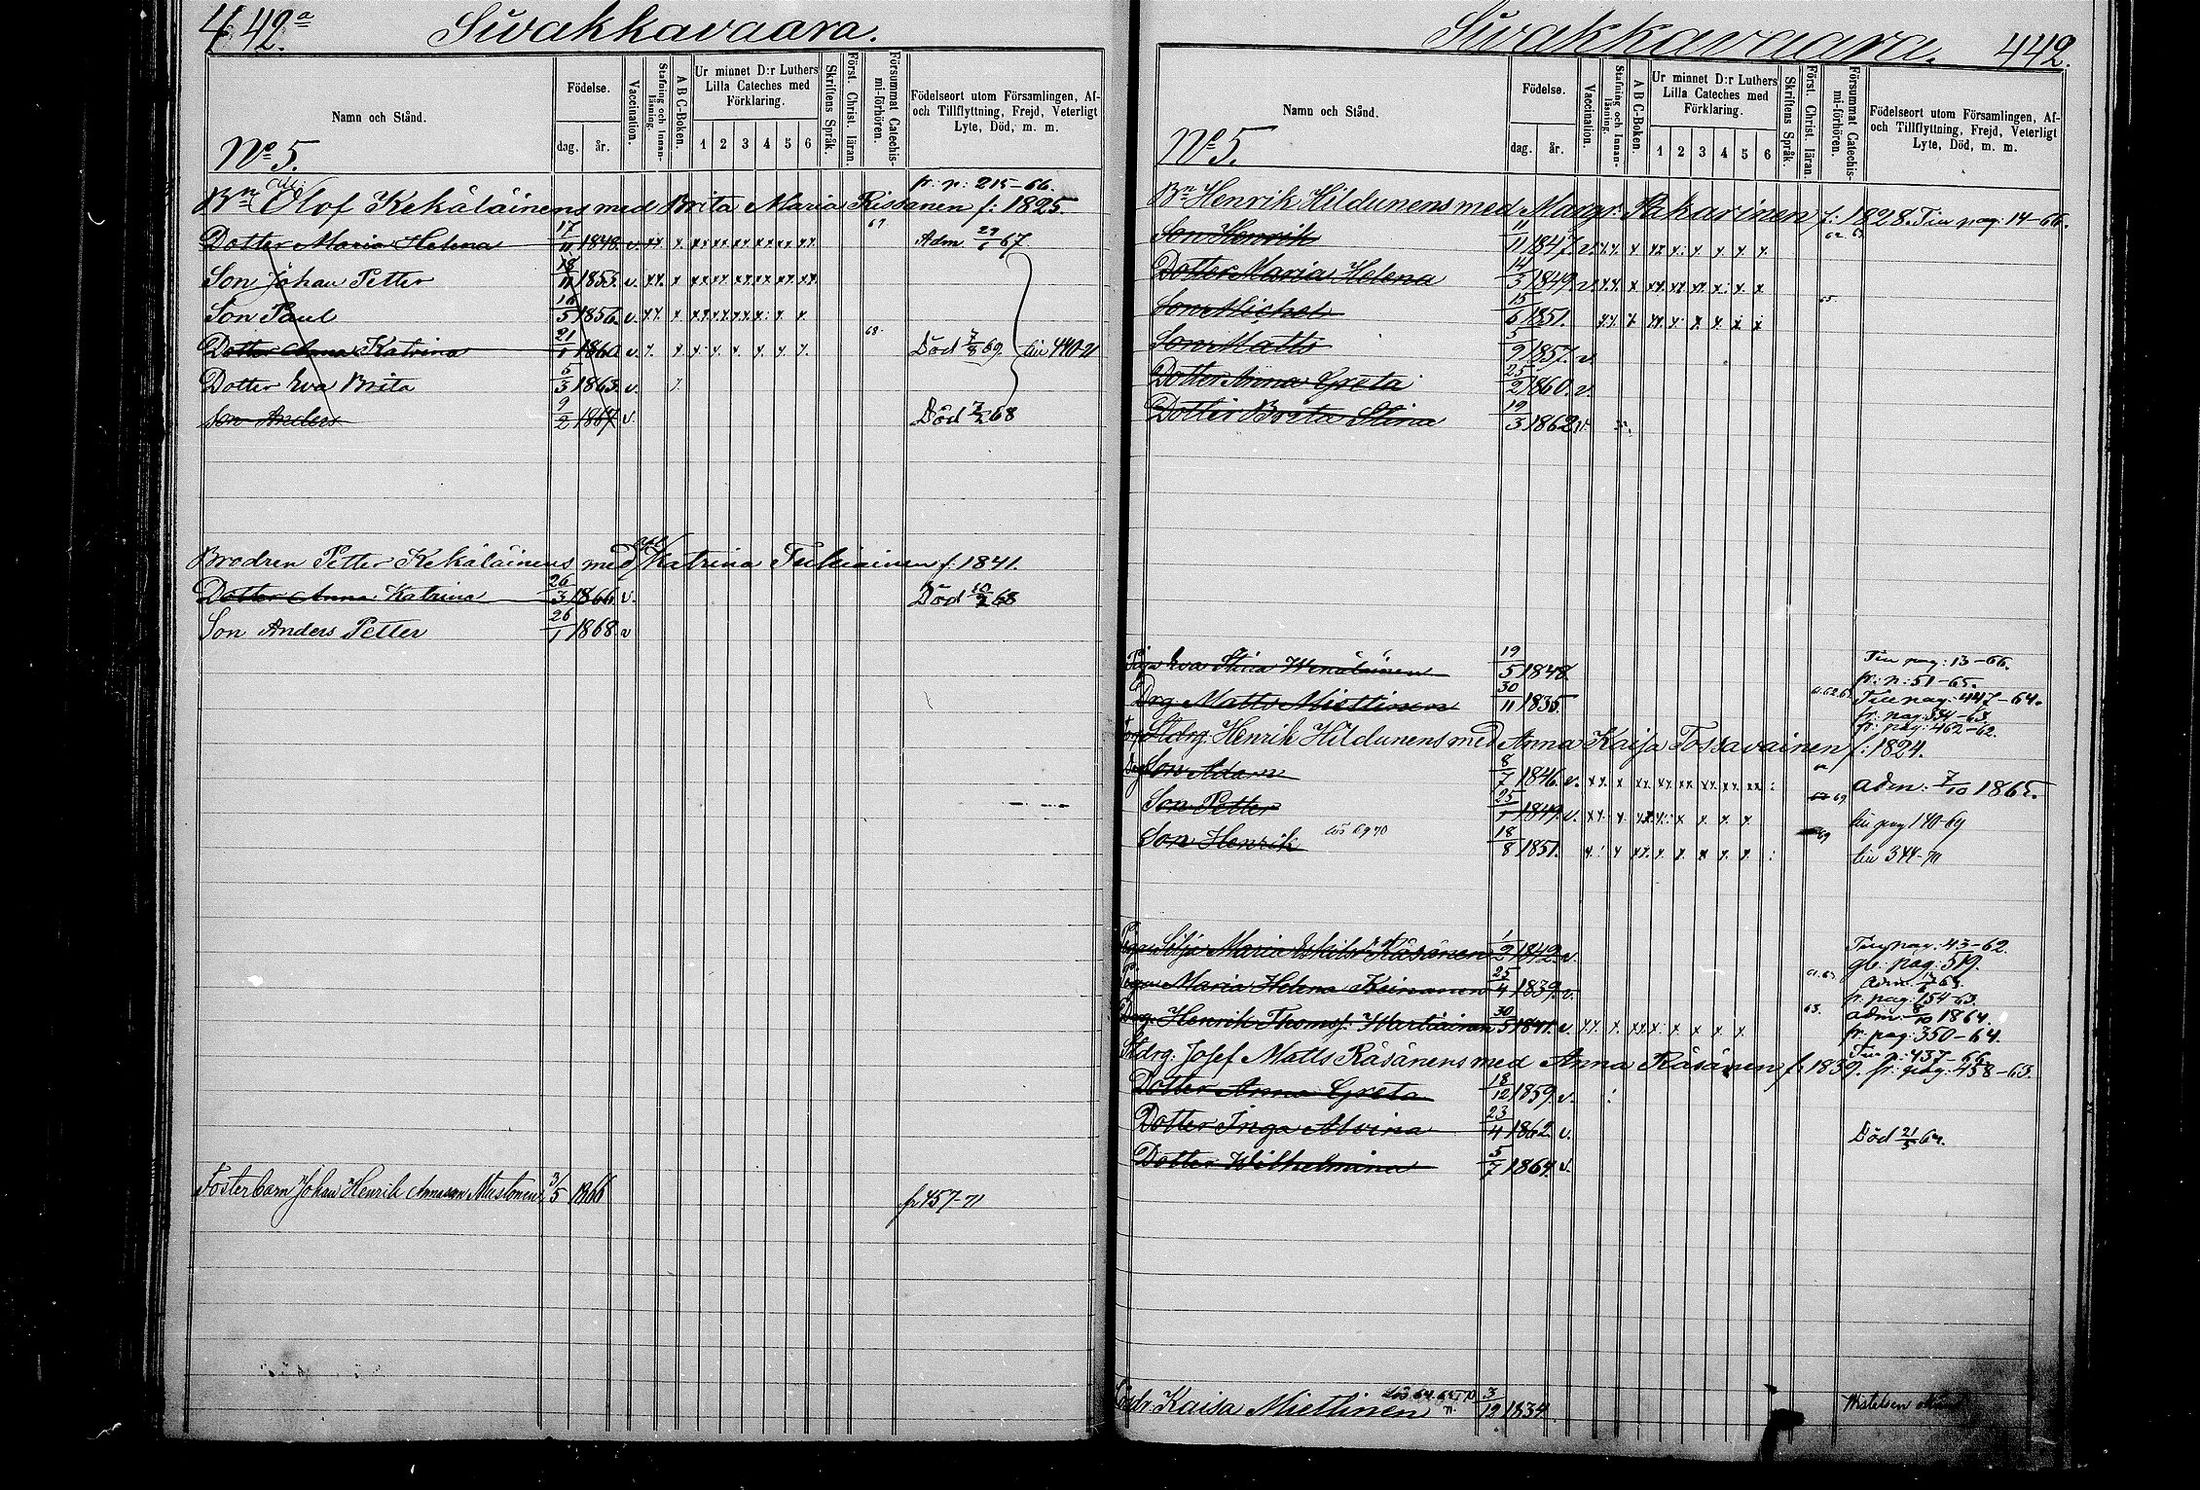 442.a Siwakkavaara.
Namn och Stånd.
Födelse.
dag. år.
Vaccination.
Stafning och Innan-läsning.
A B C-Boken.
Ur minnet D:r Luthers Lilla Cateches med Förklaring.
1 2 3 4 5 6
Skriftens Språk.
Först. Christ. läran.
Försummat Catechis-mi-förhören.
Födelseort utom Församlingen, Af- och Tillflyttning, Frejd, Veterligt Lyte, Död, m. m.
No 5.
fr. p: 215-66.
Bn Olof Kekäläinens med Brita Maria Rissanen f: 1825.
Dotter Maria Helena 17/11 1848. v. 67 Adm 29/6 67
Son Johan Petter 18/11 1853. v.
Son Paul 16/5 1856. v.
Dotter Anna Katrina 21/1 1860 v. 68. Död 7/8 69. tiu 440-71
Dotter Eva Brita 5/3 1863. v.
Son Anders 9/2 1867 v. Död 7/2 68
Brodren Petter Kekäläinens med Katrina Tuhkainen f: 1841.
Dotter Anna Katrina 26/3 1866 v. Död 10/2 68
Son Anders Petter 26/1 1868 v
Fosterbarn Johan Henrik Annason Mustonen 3/5 1866 fr 457-71
Siwakkavaara. 442.
Namn och Stånd.
Födelse.
dag. år.
Vaccination.
Stafning och Innan-läsning.
A B C-Boken.
Ur minnet D:r Luthers Lilla Cateches med Förklaring.
1 2 3 4 5 6
Skriftens Språk.
Först. Christ. läran.
Försummat Catechis-mi-förhören.
Födelseort utom Församlingen, Af- och Tillflyttning, Frejd, Veterligt Lyte, Död, m. m.
No 5.
Bn Henrik Hildunens med Margr. Pakarinen f: 1828. Tiu pag: 14-66.
Son Henrik 11/11 1847. v. 62. 63
Dotter Maria Helena 14/3 1849. v.
Son Michel 15/6 1851. 65.
Son Matts 5/9 1857. v.
Dotter Anna Greta 25/2 1860. v.
Dotter Brita Stina 19/3 1862 v.
Tiu pag: 13-66.
Piga Eva Stina Wenäläinen 19/5 1848. fr: p: 51-65.
Drg Matts Miettinen 30/11 1835. Tiu pag: 447-64.
fr. pag: 334-63.
fr: pag: 462-62.
Stdrg. Henrik Hildunens med Anna Kaisa Tossavainen f: 1824.
Son Adam 8/7 1846. v. adm: 7/10 1865.
Son Petter 25/1 1849. v. 69 tiu pag 140-69
Son Henrik 69 70 18/8 1851. 69 tiu 344-71
Tiu pag. 43-62.
Maria Räsänen 1/2 1842. v. gl. pag: 519.
Maria Helena Keinanen 25/4 1839. v. fr. pag: 154-63.
Drg. Henrik Thomss: Wartiainen 30/5 1841. v. 63. adm: 8/10 1864.
fr. pag: 350-64.
Tiu p: 437-66
Stdrg: Josef Matts Räsänens med Anna Räsänen f. 1839. fr. pag: 458-63.
Dotter Anna Greta 18/12 1859. v.
Dotter Inga Alvina 23/4 1862 v. Död 21/5 64.
Dotter Wilhelmina 5/7 1864. v.
Kaisa Miettinen 3/12 1834